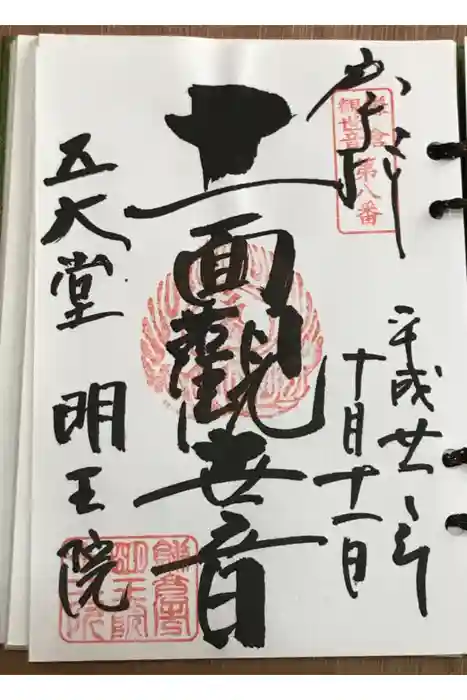 奉拝
鎌倉
観世音
第八番
平成廿 年
十月十一日
十一面觀世音
五大堂 明王院